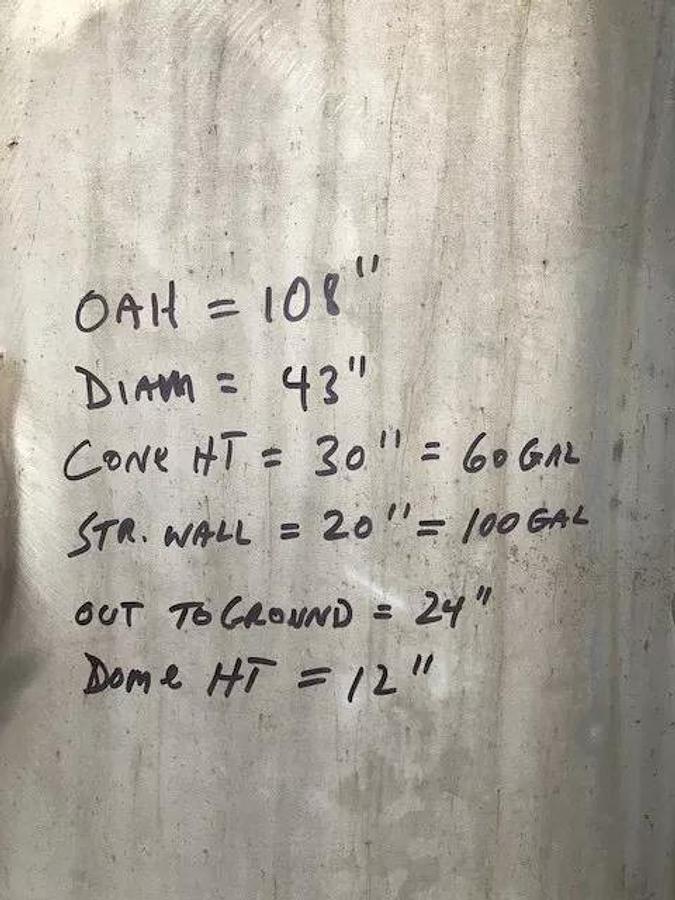 OAH = 108"
DIAM = 43"
CONE HT = 30" = 60 GAL
STR. WALL = 20" = 100 GAL
OUT TO GROUND = 24"
Dome HT = 12"